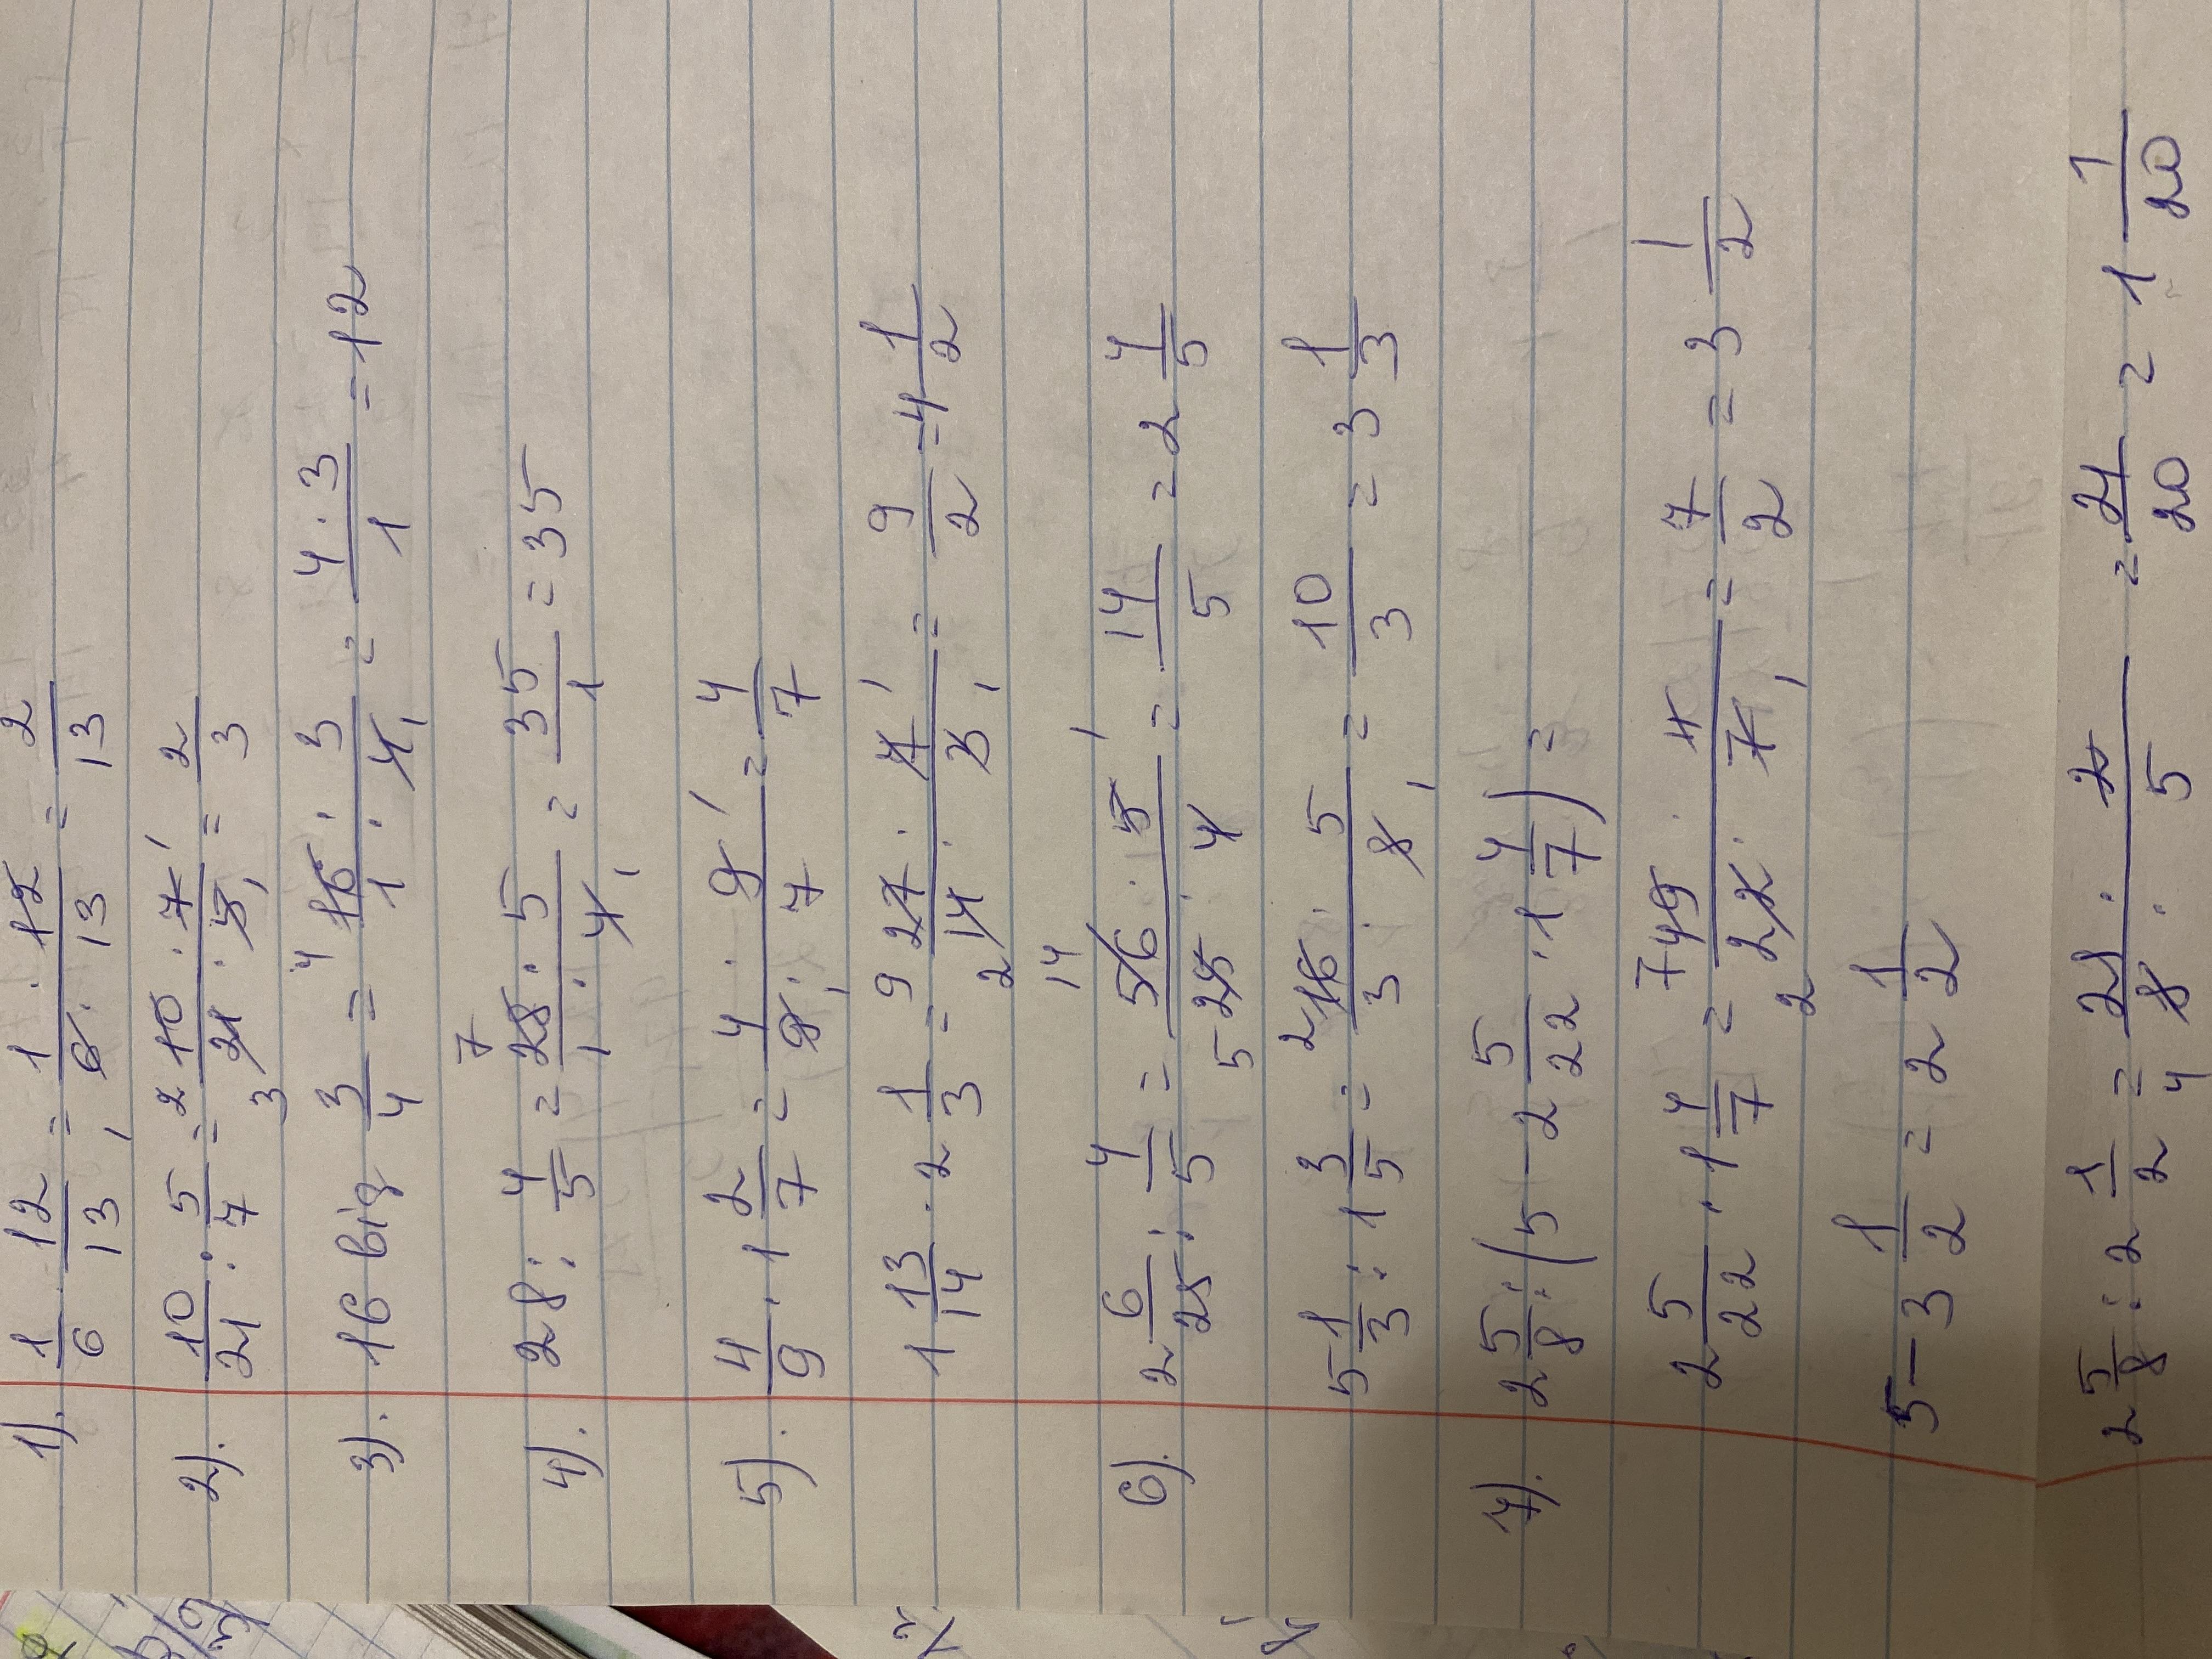 1). 1/6 · 12/13 = 1 · 12 / 6 · 13 = 2/13
2). 10/21 : 5/7 = 10 · 7 / 21 · 5 = 2/3
3). 16 від 3/4 = 16 · 3 / 1 · 4 = 4 · 3 / 1 = 12
4). 28 : 4/5 = 28 · 5 / 1 · 4 = 35/1 = 35
5). 4/9 · 1 2/7 = 4 · 9 / 9 · 7 = 4/7
1 13/14 · 2 1/3 = 27 · 7 / 14 · 3 = 9/2 = 4 1/2
6). 2 6/25 : 4/5 = 56 · 5 / 25 · 4 = 14/5 = 2 4/5
5 1/3 : 1 3/5 = 16 · 5 / 3 · 8 = 10/3 = 3 1/3
7). 2 5/8 : (5 - 2 5/22 · 1 4/7) =
2 5/22 · 1 4/7 = 49 · 11 / 22 · 7 = 7/2 = 3 1/2
5 - 3 1/2 = 2 1/2
2 5/8 : 2 1/2 = 21 · 2 / 8 · 5 = 21/20 = 1 1/20